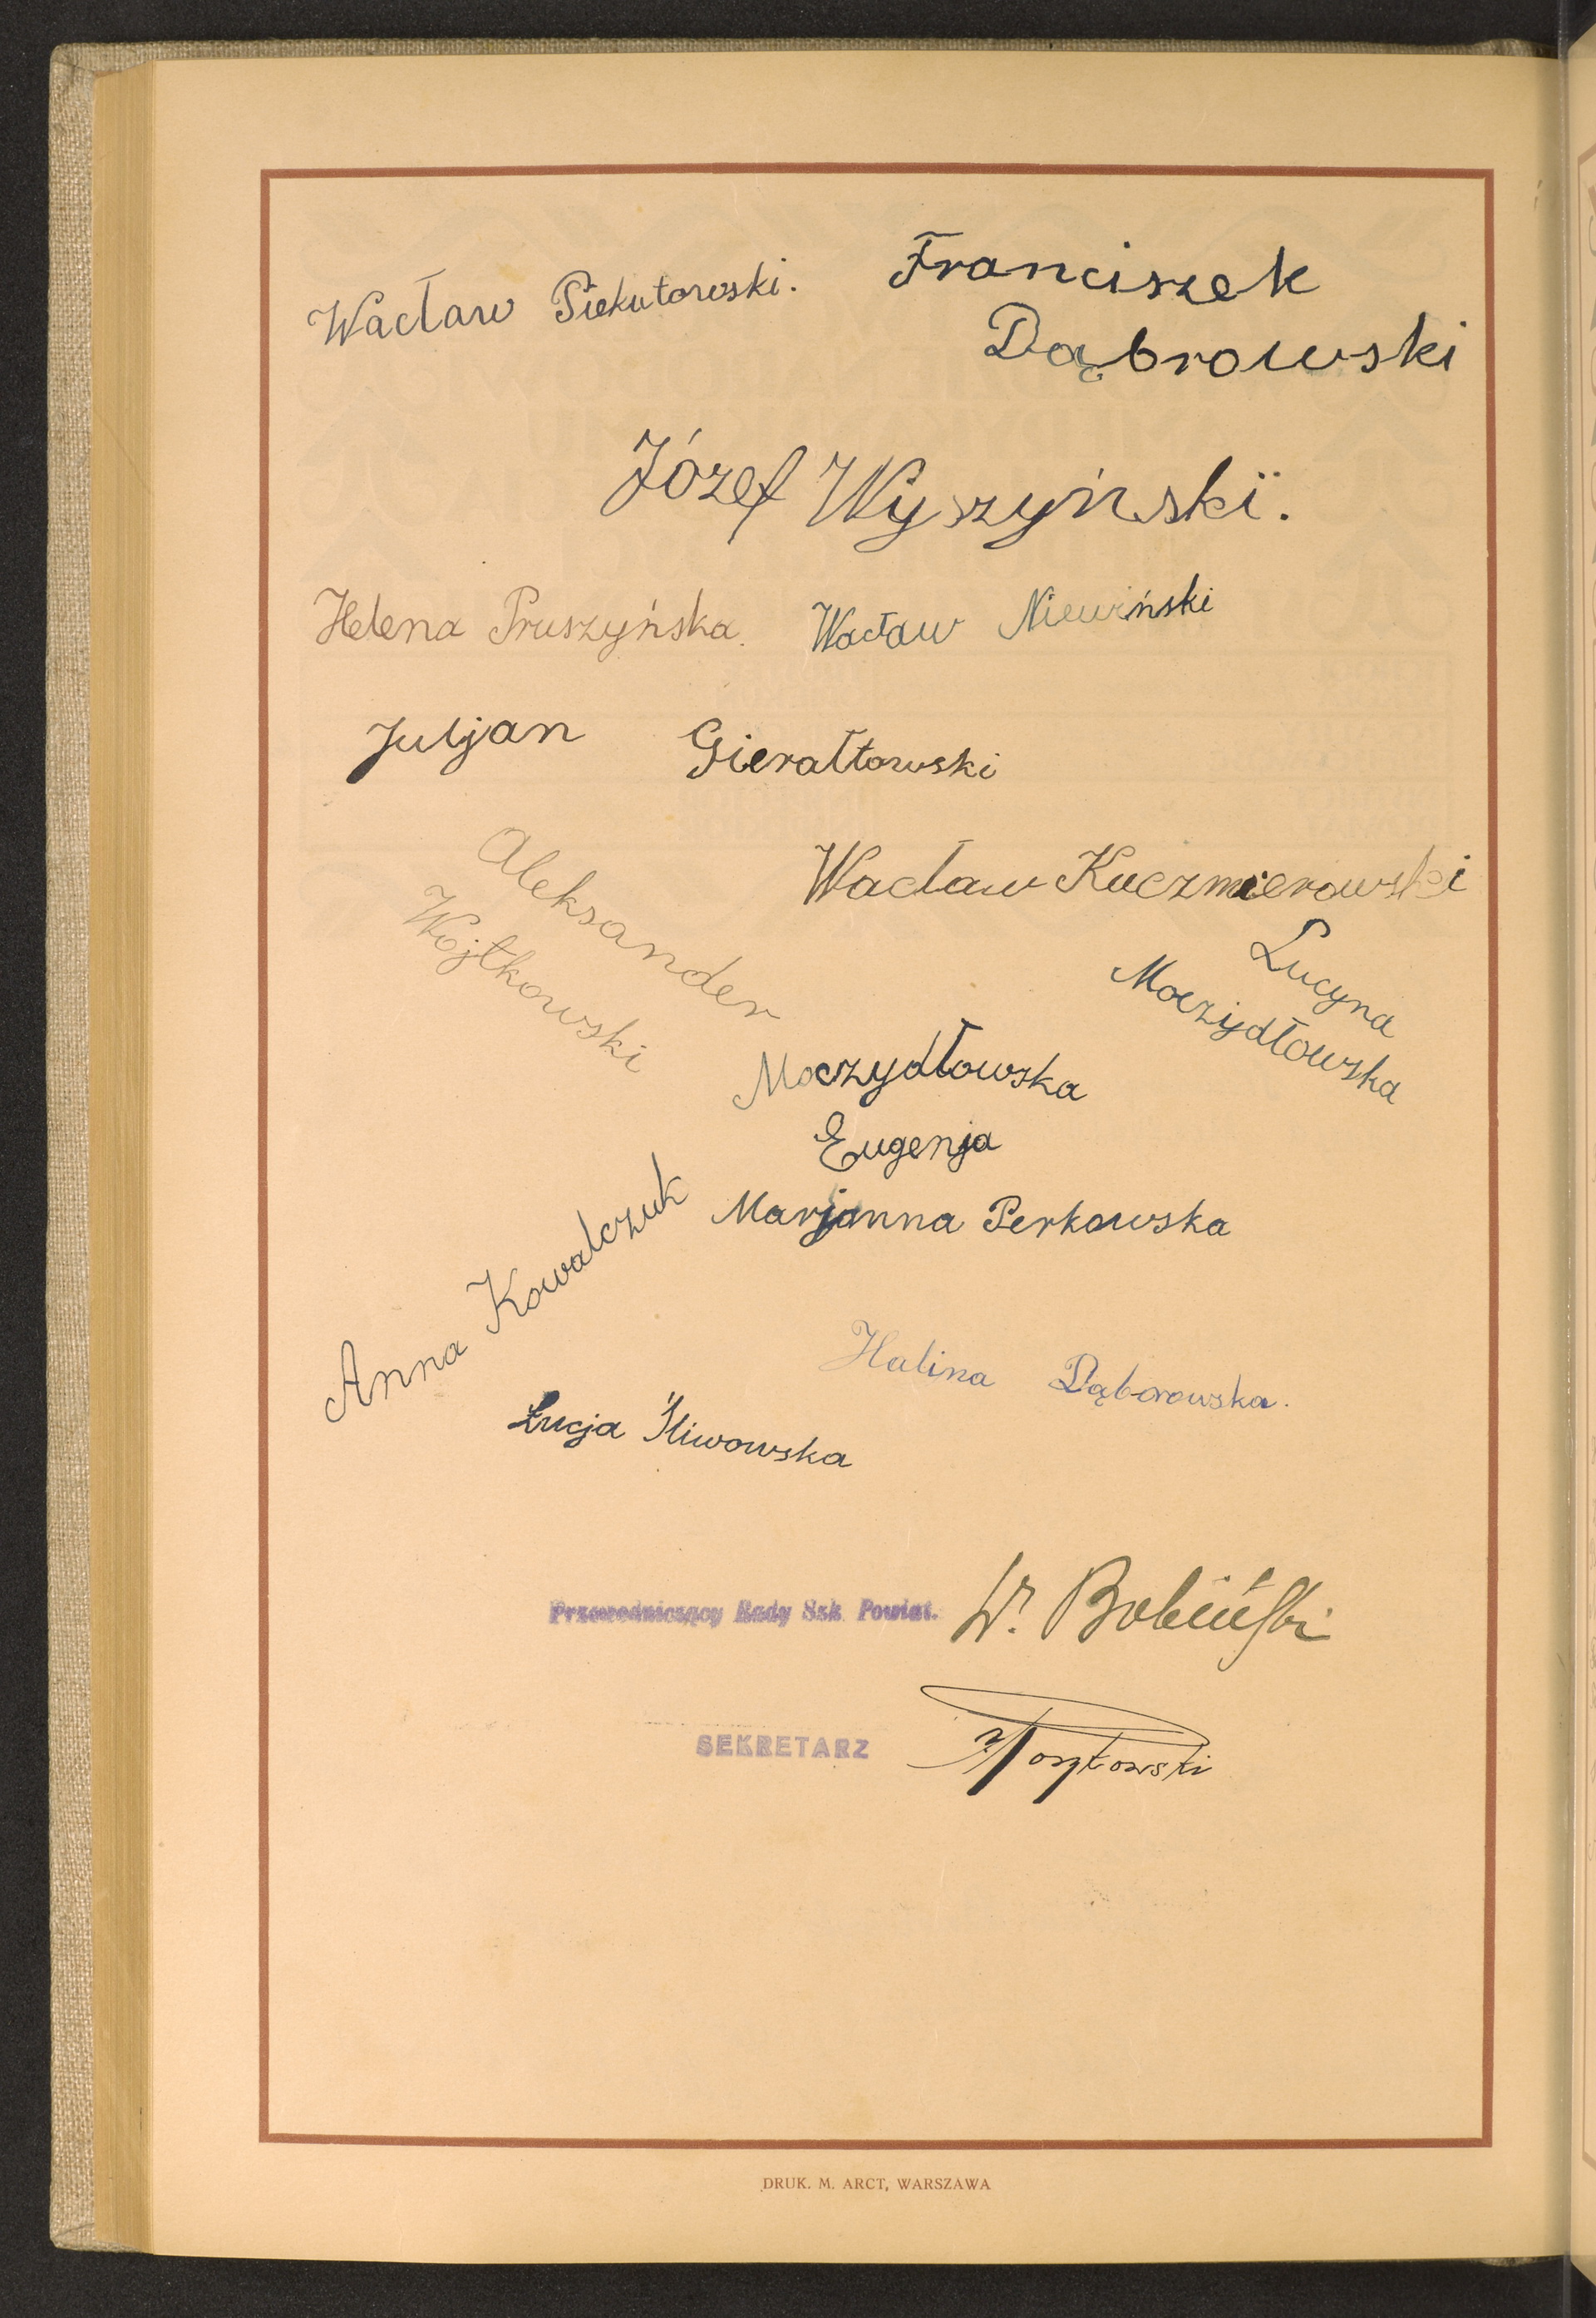 Wacław Piekutowski.
Franciszek
Dąbrowski
Józef Wyszyński.
Helena Pruszyńska.
Wacław Niewiński
Juljan Gierałtowski
Aleksander
Wojtkowski
Wacław Kaczmierowski
Lucyna
Moczydłowska
Moczydłowska
Eugenja
Marjanna Perkowska
Anna Kowalczuk
Halina Dąborowska.
Łucja Śliwowska
Przewodniczący Rady Szk. Powiat. W. Bobiński
SEKRETARZ
DRUK. M. ARCT, WARSZAWA